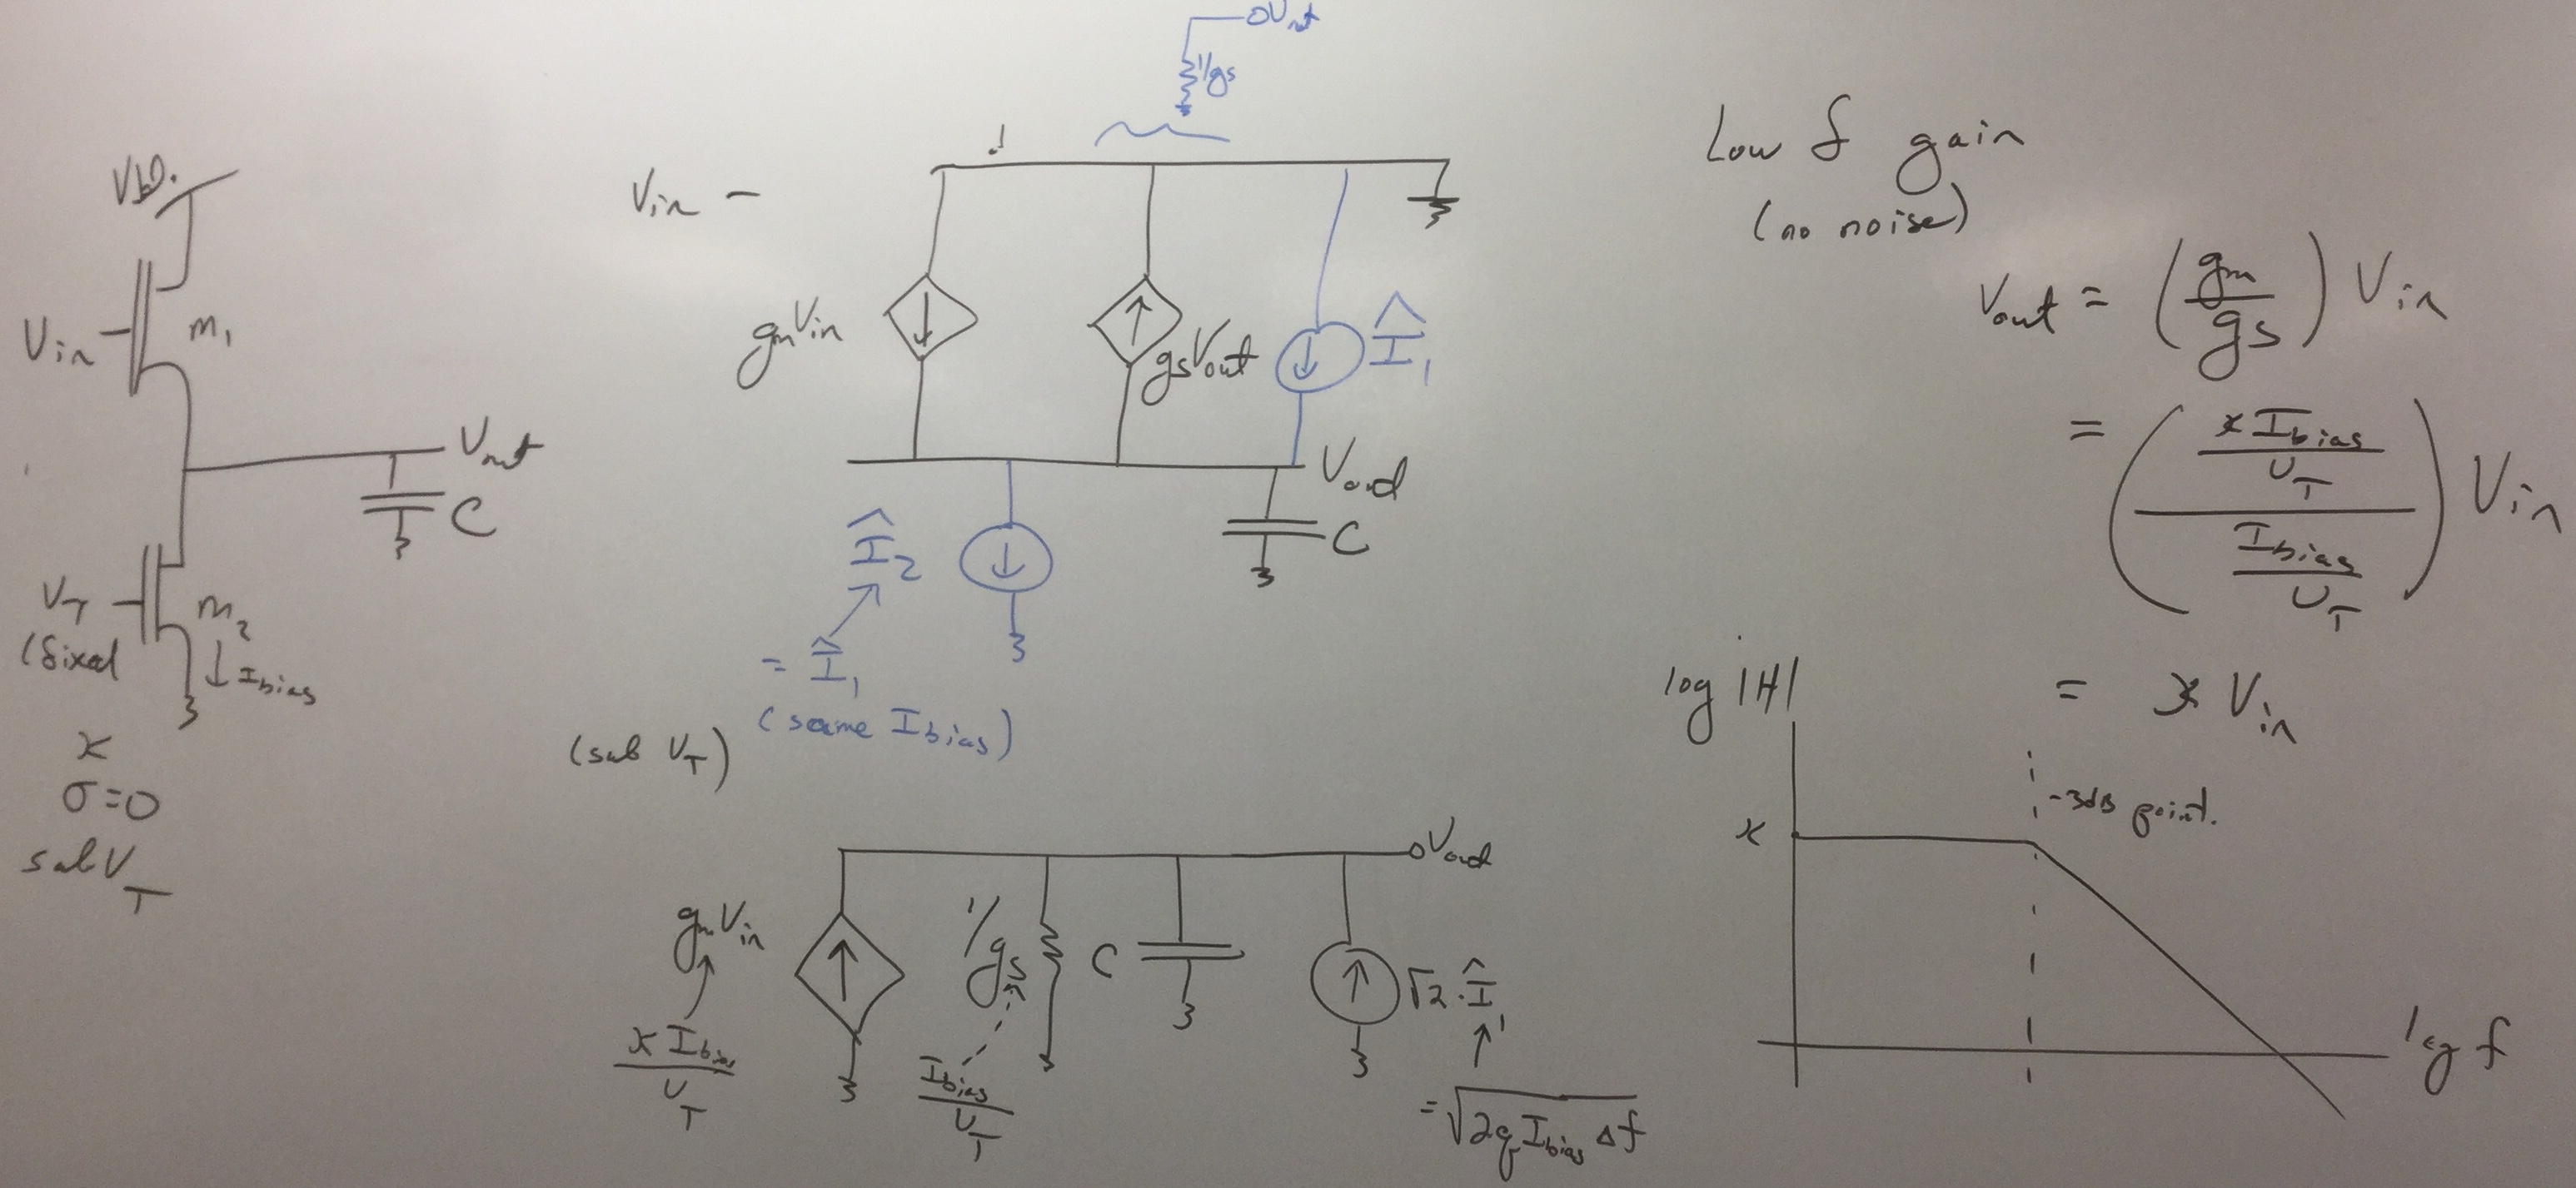 VDD
Vin
M1
Vout
C
VT
(fixed
M2
↓ Ibias
κ
σ=0
sub VT
Vout
1/gs
Vin -
gmVin
gsVout
Î1
Vout
Î2
C
= Î1
(same Ibias)
(sub VT)
Vout
gmVin
1/gs
C
√2·Î1
κ Ibias
UT
Ibias
UT
= √2q Ibias Δf
Low f gain
(no noise)
Vout = (gm/gs) Vin
= (κ Ibias/UT / Ibias/UT) Vin
= κ Vin
log |H|
-3dB point.
κ
log f